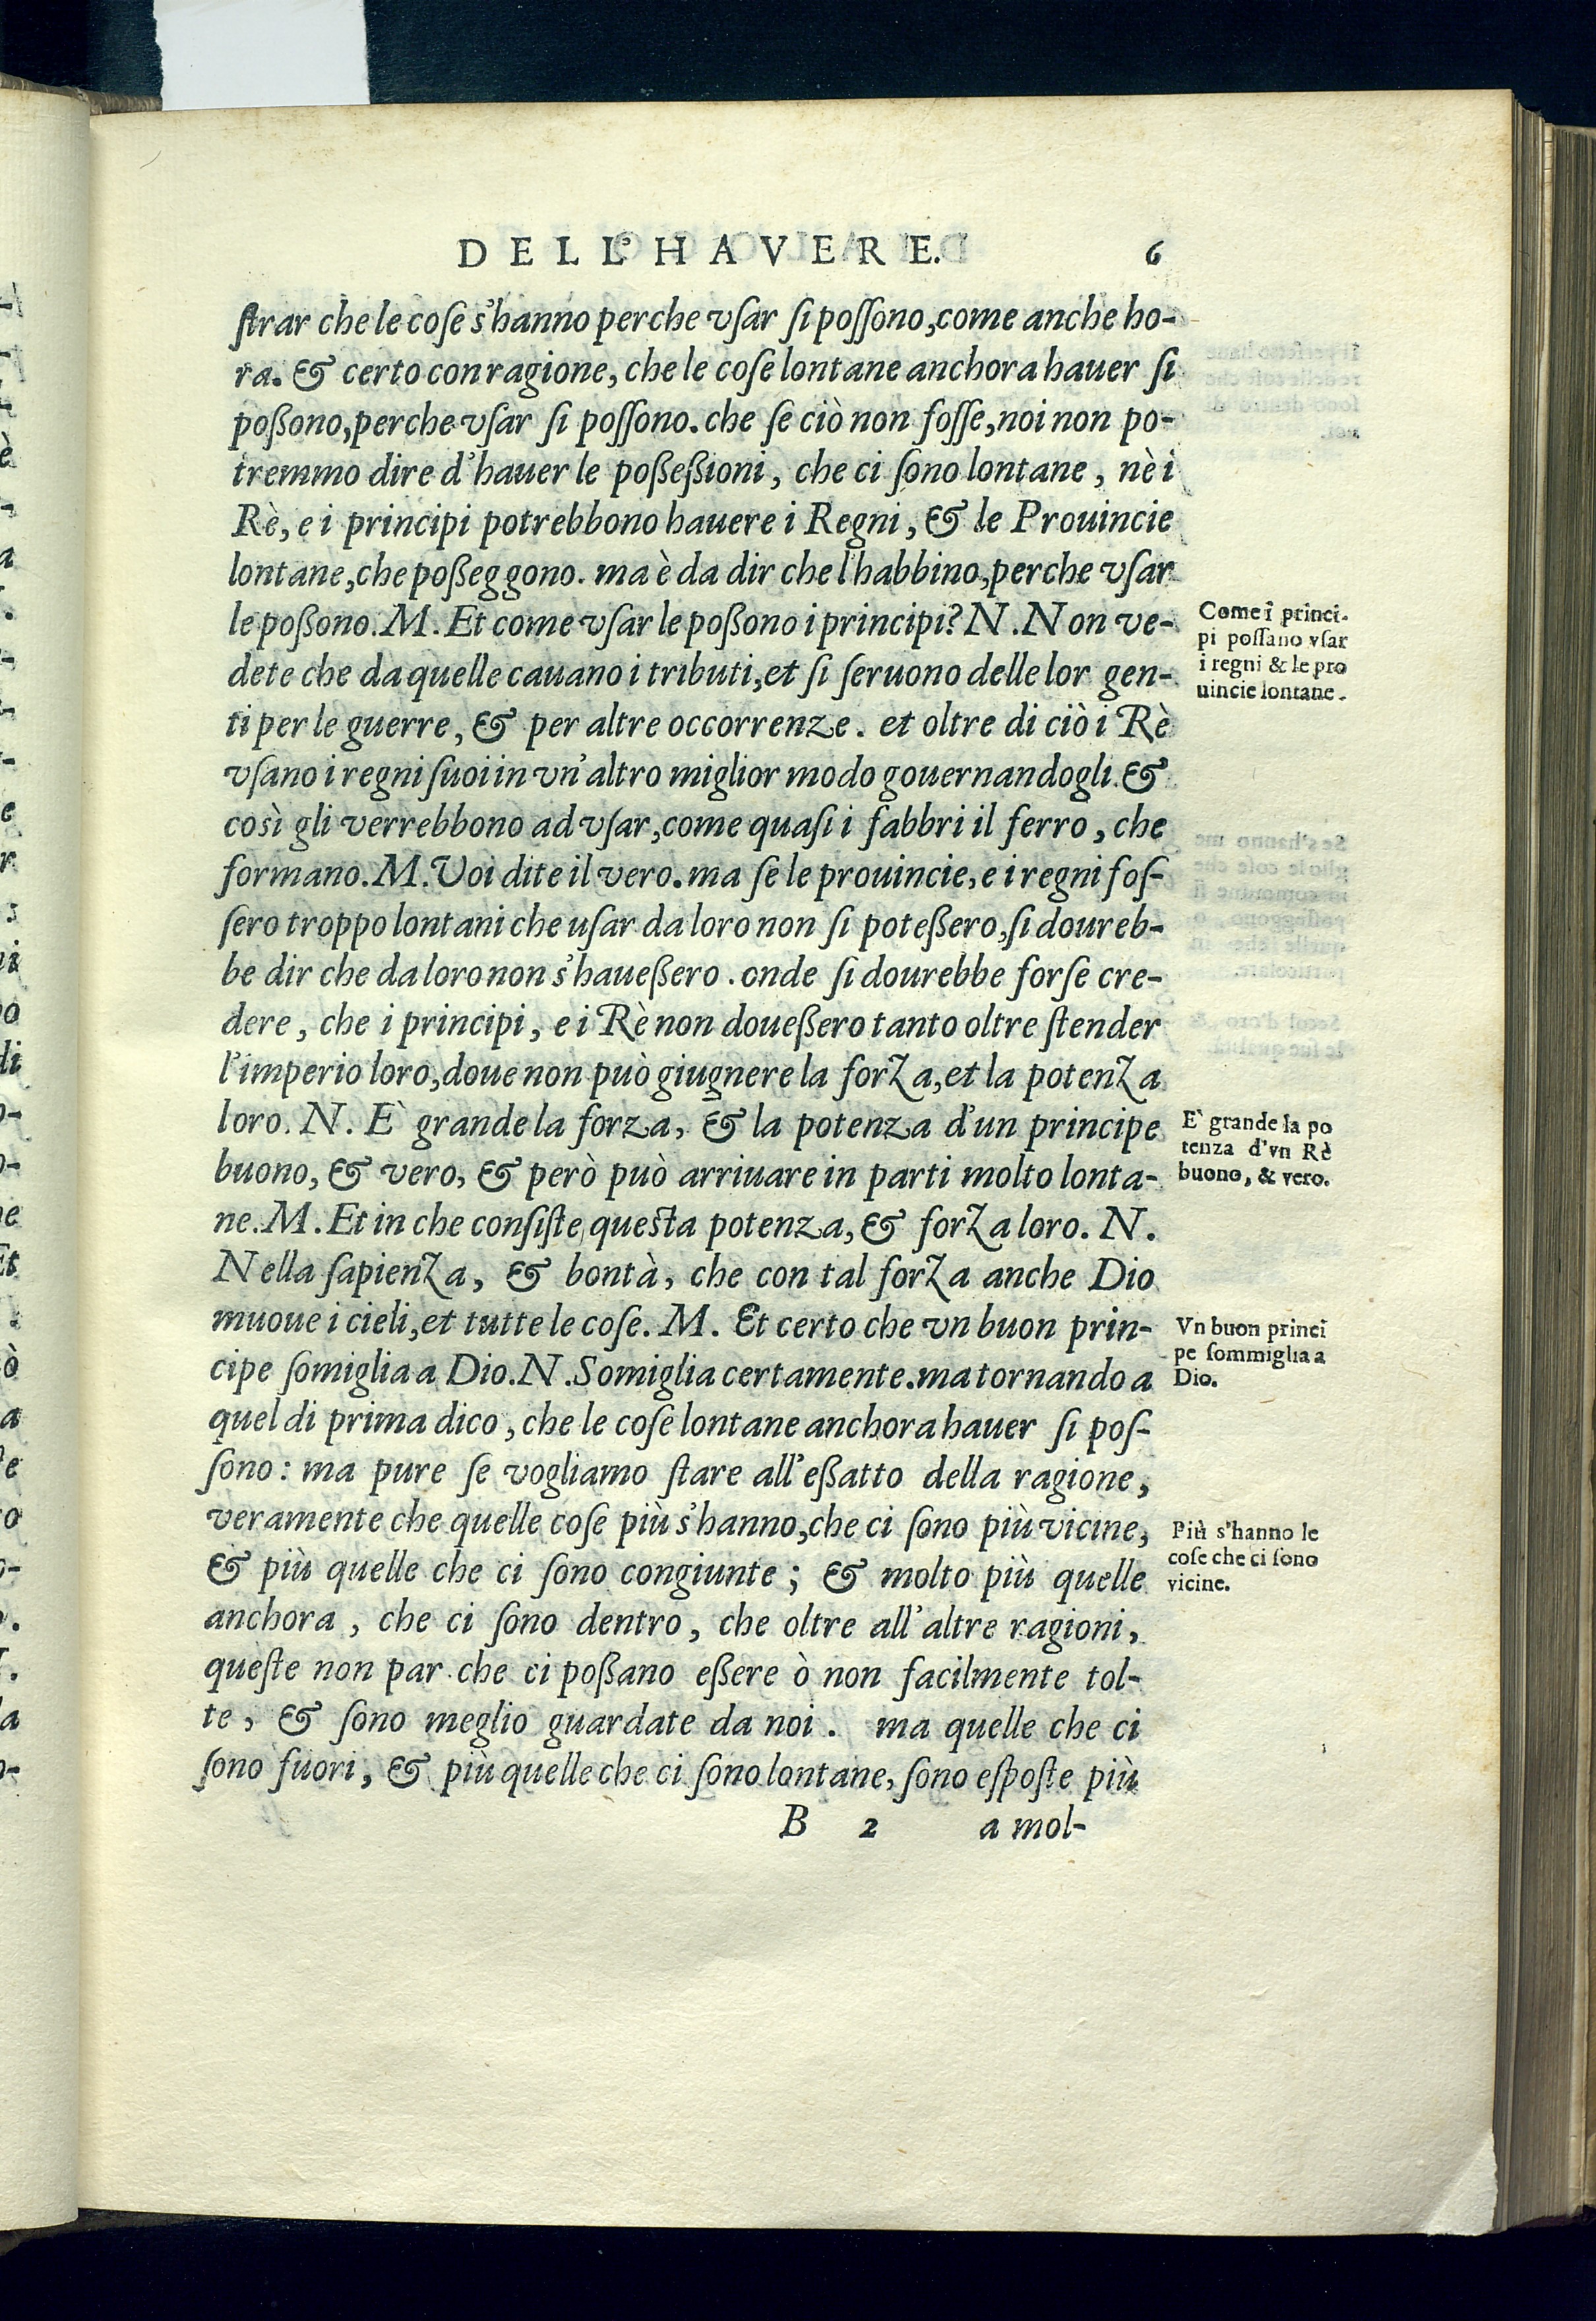 DELL'HAVERE. 6
ſtrar che le coſe s'hanno perche vſar ſi poſſono, come anche ho-
ra. & certo con ragione, che le coſe lontane anchora hauer ſi
poßono, perche vſar ſi poſſono. che ſe ciò non foſſe, noi non po-
tremmo dire d'hauer le poßeßioni, che ci ſono lontane, nè i
Rè, e i principi potrebbono hauere i Regni, & le Prouincie
lontane, che poßeggono. ma è da dir che l'habbino, perche vſar
le poßono. M. Et come vſar le poßono i principi? N. Non ve-
dete che da quelle cauano i tributi, et ſi ſeruono delle lor gen-
ti per le guerre, & per altre occorrenze. et oltre di ciò i Rè
vſano i regni ſuoi in vn'altro miglior modo gouernandogli. &
così gli verrebbono ad vſar, come quaſi i fabbri il ferro, che
formano. M. Voi dite il vero. ma ſe le prouincie, e i regni foſ-
ſero troppo lontani che uſar da loro non ſi poteßero, ſi doureb-
be dir che da loro non s'haueßero. onde ſi dourebbe forſe cre-
dere, che i principi, e i Rè non doueßero tanto oltre ſtender
l'imperio loro, doue non può giugnere la forza, et la potenza
loro. N. E' grande la forza, & la potenza d'un principe
buono, & vero, & però può arriuare in parti molto lonta-
ne. M. Et in che conſiſte queſta potenza, & forza loro. N.
Nella ſapienza, & bontà, che con tal forza anche Dio
muoue i cieli, et tutte le coſe. M. Et certo che vn buon prin-
cipe ſomiglia a Dio. N. Somiglia certamente. ma tornando a
quel di prima dico, che le coſe lontane anchora hauer ſi poſ-
ſono: ma pure ſe vogliamo ſtare all'eßatto della ragione,
veramente che quelle coſe più s'hanno, che ci ſono più vicine,
& più quelle che ci ſono congiunte; & molto più quelle
anchora, che ci ſono dentro, che oltre all'altre ragioni,
queſte non par che ci poßano eßere ò non facilmente tol-
te, & ſono meglio guardate da noi. ma quelle che ci
ſono fuori, & più quelle che ci ſono lontane, ſono eſpoſte più
B 2 a mol-
Come i princi-
pi poſſano vſar
i regni & le pro
uincie lontane.
E' grande la po
tenza d'vn Rè
buono, & vero.
Vn buon princi
pe ſommiglia a
Dio.
Più s'hanno le
coſe che ci ſono
vicine.